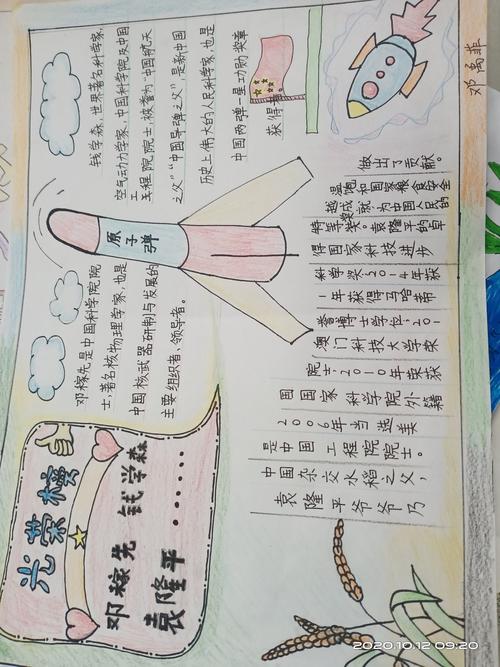 光荣榜
邓稼先 钱学森
袁隆平 ......
钱学森,世界著名科学家,
空气动力学家,中国科学院及中国
工程院院士,被誉为“中国航天
之父”“中国导弹之父”是新中国
历史上伟大的人民科学家,也是
中国两弹一星功勋奖章
获得者。
原子
弹
邓稼先是中国科学院院
士,著名核物理学家,也是
中国核武器研制与发展的
主要组织者、领导者。
袁隆平爷爷乃
中国杂交水稻之父,
是中国工程院院士。
2006年当选美
国国家科学院外籍
院士2010年荣获
澳门科技大学荣
誉博士学位。201
1年获得马哈蒂
科学奖2014年获
得国家科技进步
特等奖。袁隆平的卓
越成就,为中国人民的
温饱和国家粮食安全
做出了贡献。
邓禹菲
2020.10.12 09:20